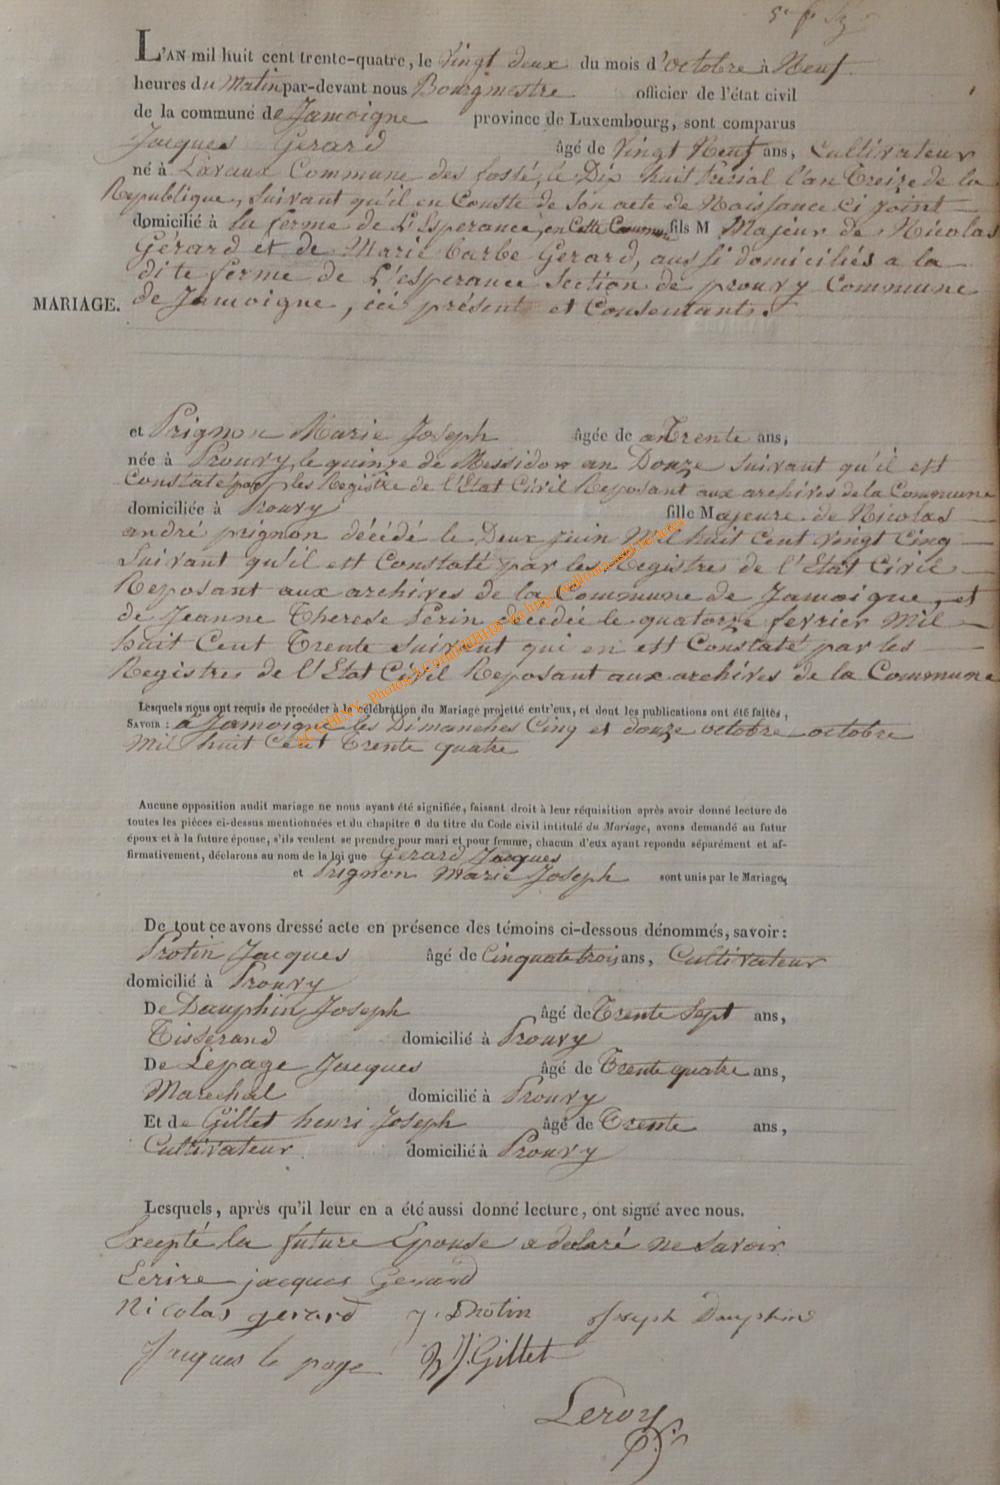 L'AN mil huit cent trente-quatre, le Vingt deux du mois d'octobre à Neuf
heures du Matin par-devant nous Bourgmestre officier de l'état civil
de la commune de Jamoigne province de Luxembourg, sont comparus
Jacques Gerard âgé de Vingt Neuf ans, Cultivateur
né à Lavaux Commune des fossé, le Dix huit l'an Treize de la
Republique, Suivant qu'il en Conste de Son acte de Naissance Ci joint
domicilié à la ferme de L'Esperance, en Cette Commune fils M Majeur de Nicolas
Gérard et de Marie barbe Gerard, aussi domiciliés a la
dite ferme de L'esperance Section de prouvy Commune
MARIAGE. de Jamoigne, ici présents et Consentants.
et Prignon Marie Joseph âgée de Trente ans,
née à Prouvy, le quinze de Messidor an Douze Suivant qu'il est
Constaté par les Registre de l'Etat Civil Reposant aux archives de la Commune
domiciliée à Prouvy fille Majeure de Nicolas
andré prignon décédé le Deux juin Mil huit Cent Vingt Cinq
Suivant qu'il est Constaté par les Registre de l'Etat Civil
Reposant aux archives de la Commune de Jamoigne, et
de Jeanne Therese Perin décedée le quatorze fevrier Mil
huit Cent Trente Suivant qui en est Constaté par les
Registres de l'Etat Civil Reposant aux archives de la Commune
Lesquels nous ont requis de procéder à la célébration du Mariage projetté entr'eux, et dont les publications ont été faites,
SAVOIR : a Jamoigne les Dimanches Cinq et douze octobre octobre
Mil huit Cent Trente quatre
Aucune opposition audit mariage ne nous ayant été signifiée, faisant droit à leur réquisition après avoir donné lecture de
toutes les pièces ci-dessus mentionnées et du chapitre 6 du titre du Code civil intitulé du Mariage, avons demandé au futur
époux et à la future épouse, s'ils veulent se prendre pour mari et pour femme, chacun d'eux ayant repondu séparément et af-
firmativement, déclarons au nom de la loi que Gerard Jacques
et Prignon Marie Joseph sont unis par le Mariage,
De tout ce avons dressé acte en présence des témoins ci-dessous dénommés, savoir :
Protin Jacques âgé de Cinquate trois ans, Cultivateur
domicilié à Prouvy
De Dauphin Joseph âgé de Trente Sept ans,
Tisserand domicilié à Prouvy
De Lepage Jacques âgé de Trente quatre ans,
Marechal domicilié à Prouvy
Et de Gillet henri Joseph âgé de Trente ans,
Cultivateur domicilié à Prouvy
Lesquels, après qu'il leur en a été aussi donné lecture, ont signé avec nous.
Excepté la future Epouse a declaré ne Savoir
Ecrire jacques Gerard
Nicolas gerard Joseph Dauphin
Jacques le page Gillet
Leroy